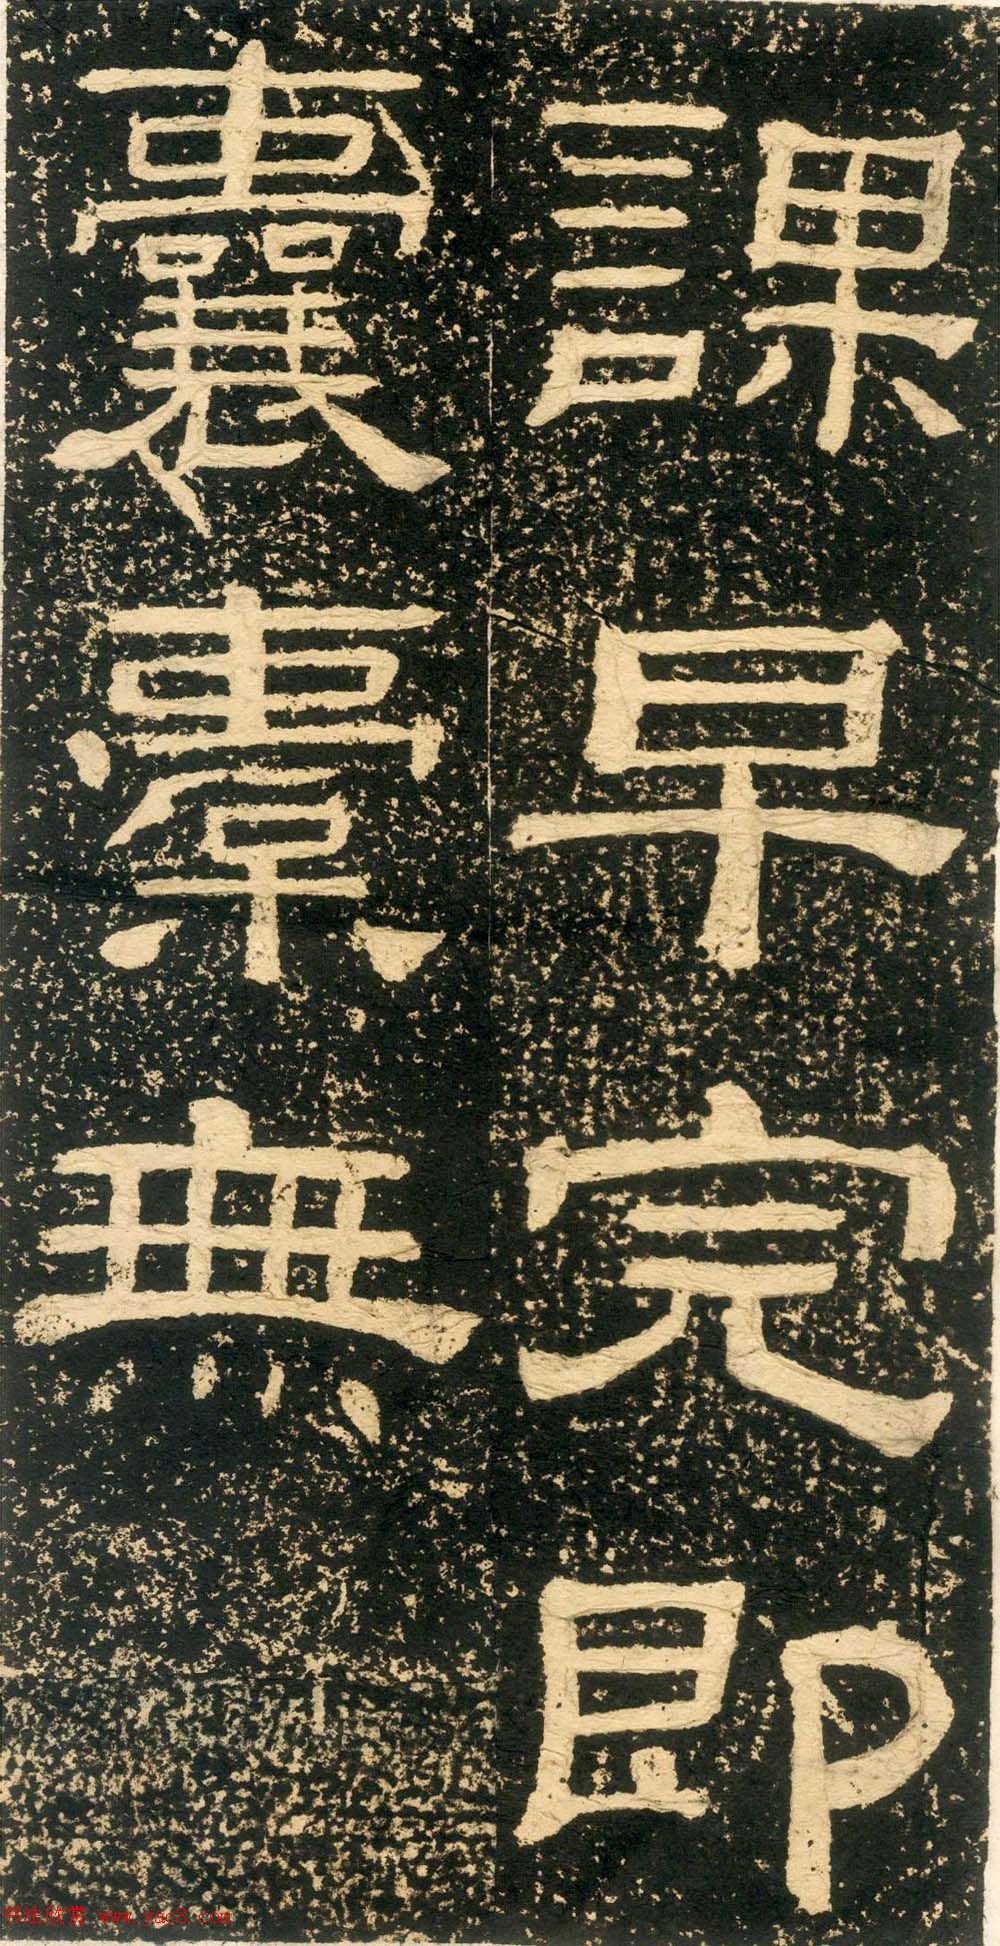 課早完即
囊橐無
书法欣赏 www.yac8.com